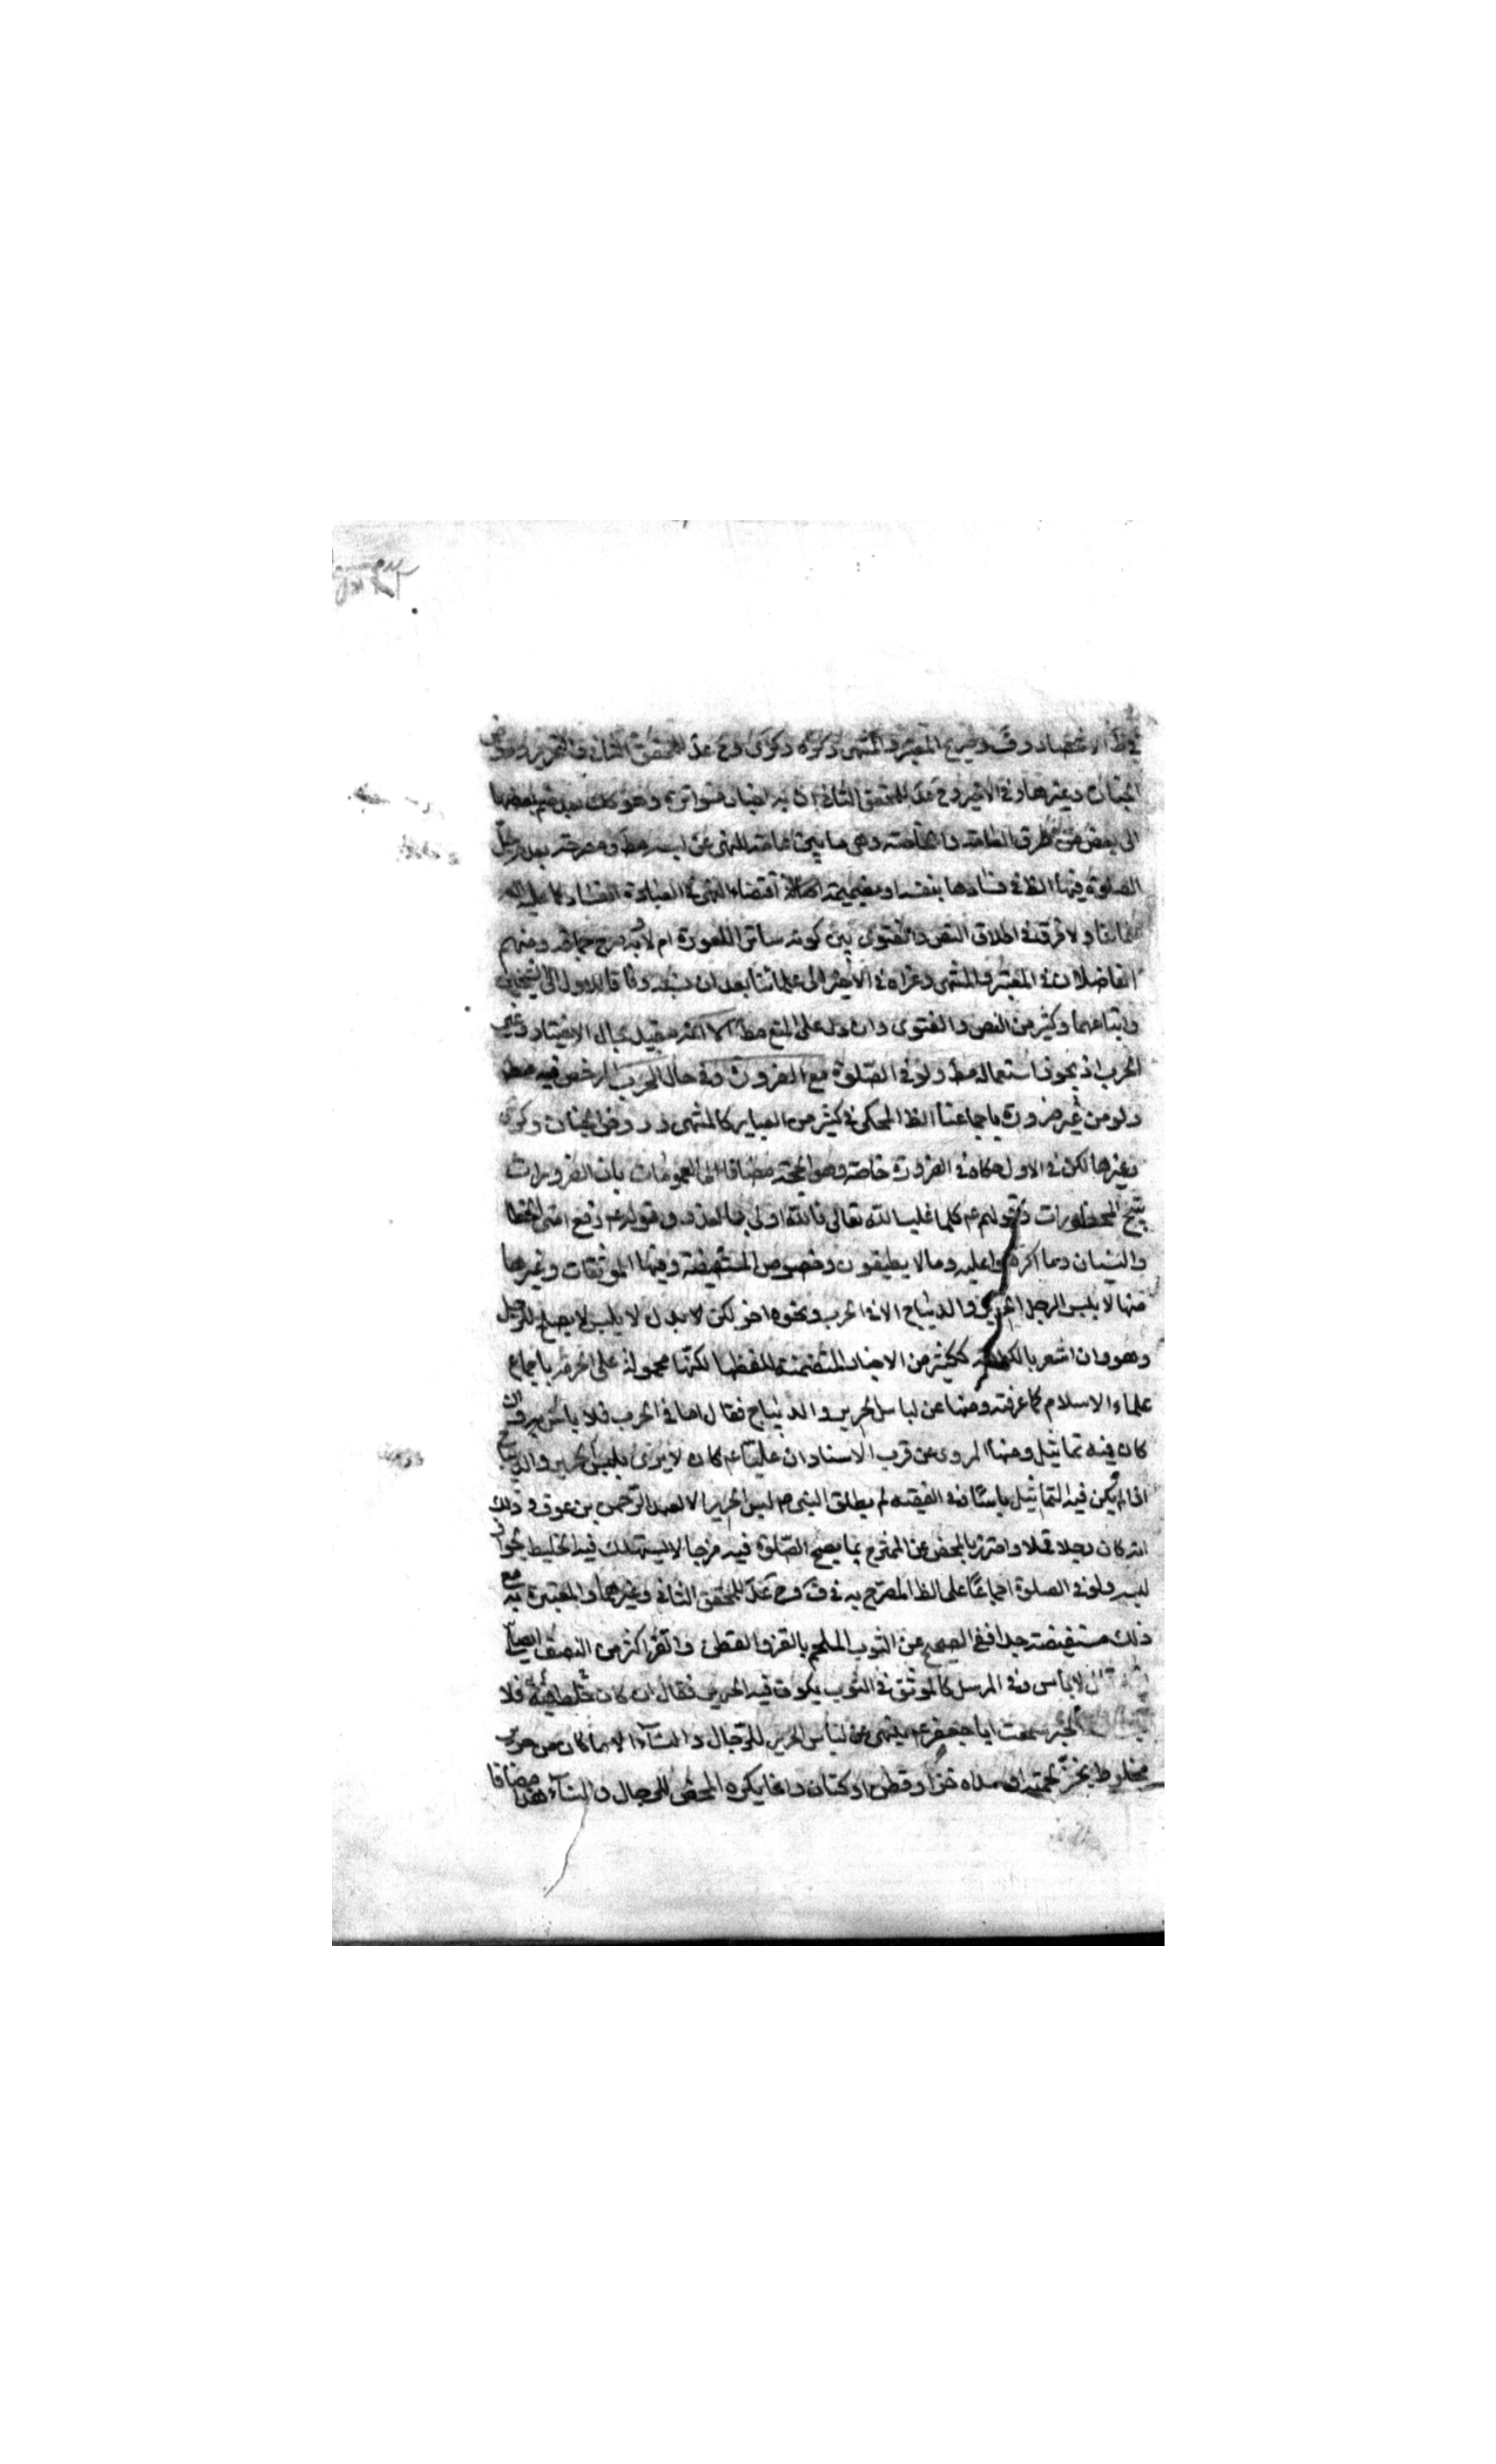 الانتصار وف وصريح المعتبر والمنتهى وكره وكرى وح عد للمحقق الثاني والتحرير وروض
الجنان وغيرها وفى الاخيروح عد للمحقق الثاني ان به اخبار متواترة وهو كك بعد ضم بعضها
الى بعض من طرق العامة والخاصة وهى ما بين عامة للنهى عن لبسه مط ومصرحة بعدم حل
الصلوة فيها الظ فى فسادها بنفسه او بضميمة اصالة اقتضاء النهى فى العبادة الفساد كما عليه
علمائنا ولا فرق فى اطلاق النص والفتوى بين كونه ساترا للعورة ام لا به صرح جماعة ومنهم
الفاضلان فى المعتبر والمنتهى وعزاه فى الاخير الى علمائنا بعد ان نسبه وفاقا للاول الى الشيخين
واتباعهما وكثير من النص والفتوى وان دل على المنع مط الا انه مقيد بحال الاختيار وغير
الحرب اذ يجوز استعماله مط ولو فى الصلوة مع الضرورة وفى حال الحرب المرخص فيه مط
ولو من غير ضرورة باجماعنا الظ المحكى فى كثير من العباير كالمنتهى ور وض الجنان وكرى
وغيرها لكن فى الاول حكاه فى الضرورة خاصة وهو الحجة مضافا الى العمومات بان الضرورات
تبيح المحظورات وقولهم ع كلما غلب الله تعالى فالله اولى بالعذر وقوله ع رفع عن امتى الخطا
والنسيان وما اكرهوا عليه وما لا يطيقون وخصوص المستفيضة وفيها الموثقات وغيرها
منها لا يلبس الرجل الحرير والديباج الا فى الحرب ونحوه اخر لكن لا بدل لا يلبس لا يصلح للرجل
وهو وان اشعر بالكراهة ككثير من الاخبار المتضمنة للفظها لكنها محمولة على الحرمة باجماع
علماء الاسلام كما عرفته ومنها عن لباس الحرير والديباج فقال اما فى الحرب فلا باس به وان
كان فيه تماثيل ومنها المروى عن قرب الاسناد ان عليا ع كان لا يرى بلبس الحرير والديباج
اذا لم يكن فيه التماثيل باسا وفى الفقيه لم يطلق النبى ص لبس الحرير الا لعبد الرحمن بن عوف وذلك
انه كان رجلا قملا واحترز بالمحض عن الممتزج بما يصح الصلوة فيه مزجا لا يستهلك فيه الخليط لجواز
لبسه ولو فى الصلوة اجماعا على الظ المصرح به فى ف وح عد للمحقق الثاني وغيرهما والمعتبرة به مع
ذلك مستفيضة جدا ففى الصحيح عن الثوب الملحم بالقز والقطن والقز اكثر من النصف ايصلى
قال لا باس وفى المرسل كالموثق فى الثوب يكون فيه الحرير فقال ان كان فيه خلط فلا
الخبر سمعت ابا جعفر ع ينهى عن لباس الحرير للرجال والنساء الا ما كان من حرير
مخلوط بخز لحمته او سداه خز او قطن او كتان وانما يكره المحض للرجال والنساء هذا مضافا